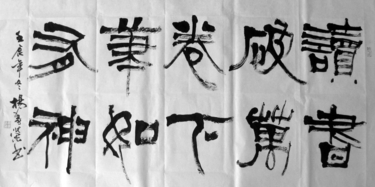 讀書
破萬
卷下
筆如
有神
壬辰年冬 楊 書